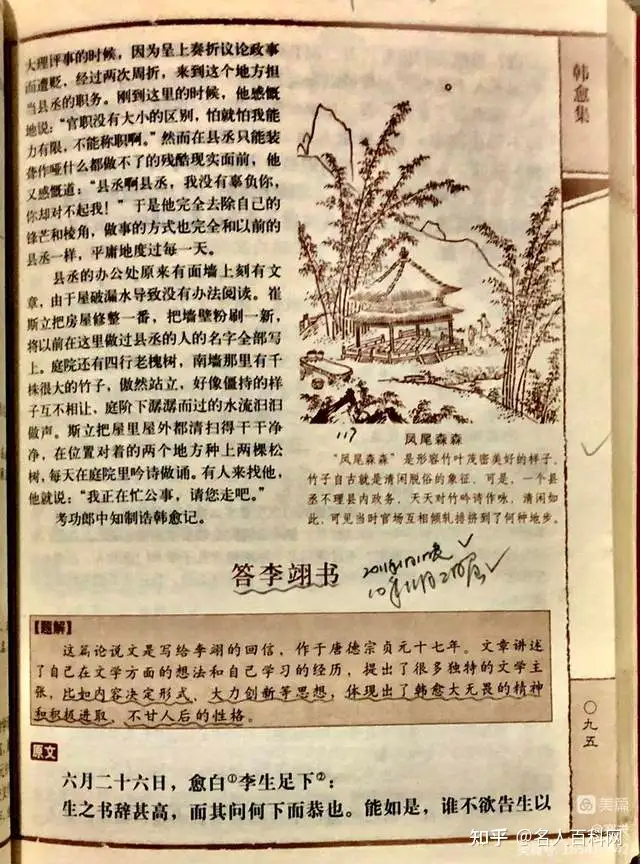 大理评事的时候，因为呈上奏折议论政事
而遭贬，经过两次周折，来到这个地方担
当县丞的职务。刚到这里的时候，他感慨
地说：“官职没有大小的区别，怕就怕我能
力有限，不能称职啊。”然而在县丞只能装
聋作哑什么都做不了的残酷现实面前，他
又感慨道：“县丞啊县丞，我没有辜负你，
你却对不起我！”于是他完全去除自己的
锋芒和棱角，做事的方式也完全和以前的
县丞一样，平庸地度过每一天。
县丞的办公处原来有面墙上刻有文
章，由于屋破漏水导致没有办法阅读。崔
斯立把房屋修整一番，把墙壁粉刷一新，
将以前在这里做过县丞的人的名字全部写
上。庭院还有四行老槐树，南墙那里有千
株很大的竹子，傲然站立，好像僵持的样
子互不相让，庭阶下潺潺而过的水流汩汩
做声。斯立把屋里屋外都清扫得干干净
净，在位置对着的两个地方种上两棵松
树，每天在庭院里吟诗做诵。有人来找他，
他就说：“我正在忙公事，请您走吧。”
考功郎中知制诰韩愈记。
韩愈集
117
凤尾森森
“凤尾森森”是形容竹叶茂密美好的样子，
竹子自古就是清闲脱俗的象征，可是，一个县
丞不理县内政务，天天对竹吟诗作咏，清闲如
此，可见当时官场互相倾轧排挤到了何种地步。
答李翊书
【题解】
这篇论说文是写给李翊的回信，作于唐德宗贞元十七年。文章讲述
了自己在文学方面的想法和自己学习的经历，提出了很多独特的文学主
张，比如内容决定形式，大力创新等思想，体现出了韩愈大无畏的精神
和积极进取、不甘人后的性格。
原文
六月二十六日，愈白①李生足下②：
生之书辞甚高，而其问何下而恭也。能如是，谁不欲告生以
〇九五
美篇
知乎 @名人百科网